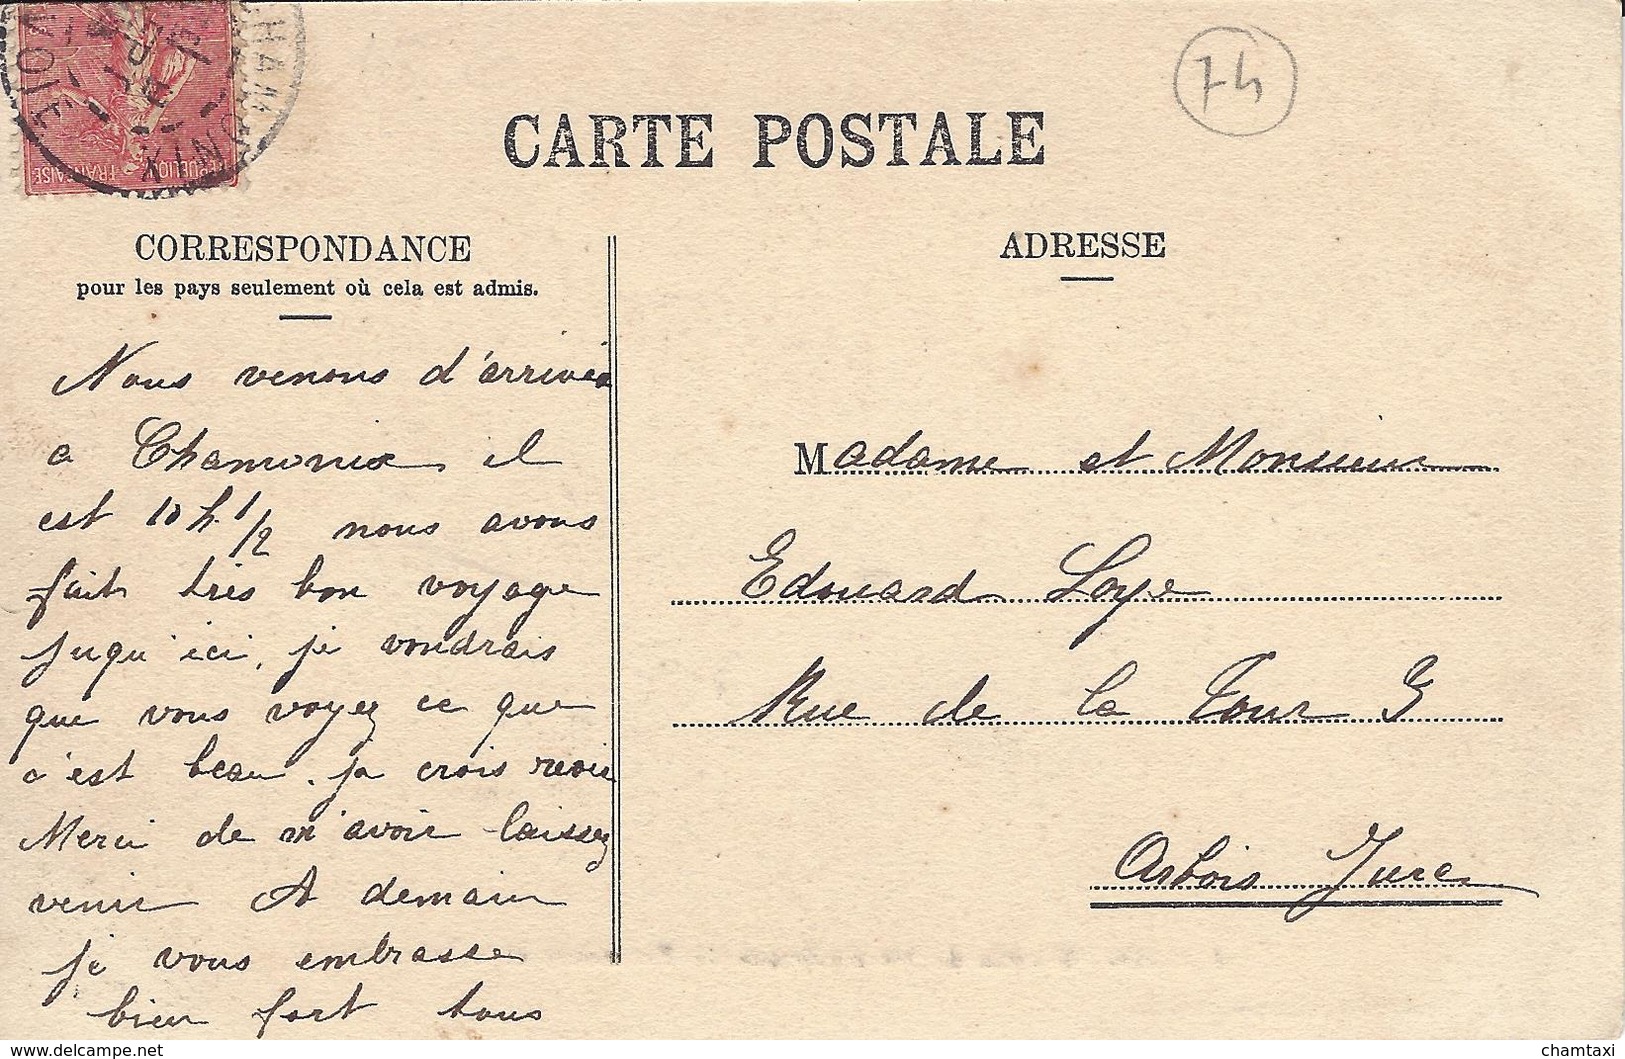 74
CARTE POSTALE
CHAMONIX
SAVOIE
RÉPUBLIQUE
FRANÇAISE
CORRESPONDANCE
pour les pays seulement où cela est admis.
Nous venons d'arriver
a Chamonix, il
est 10 h 1/2 nous avons
fait très bon voyage
jusqu'ici, je voudrais
que vous voyez ce que
c'est beau. je crois rever
Merci de m'avoir laissez
venir A demain
je vous embrasse
bien fort tous
ADRESSE
Madame et Monsieur
Edouard Loye
Rue de la Tour
Arbois Jura
Delcampe.net
chamtaxi